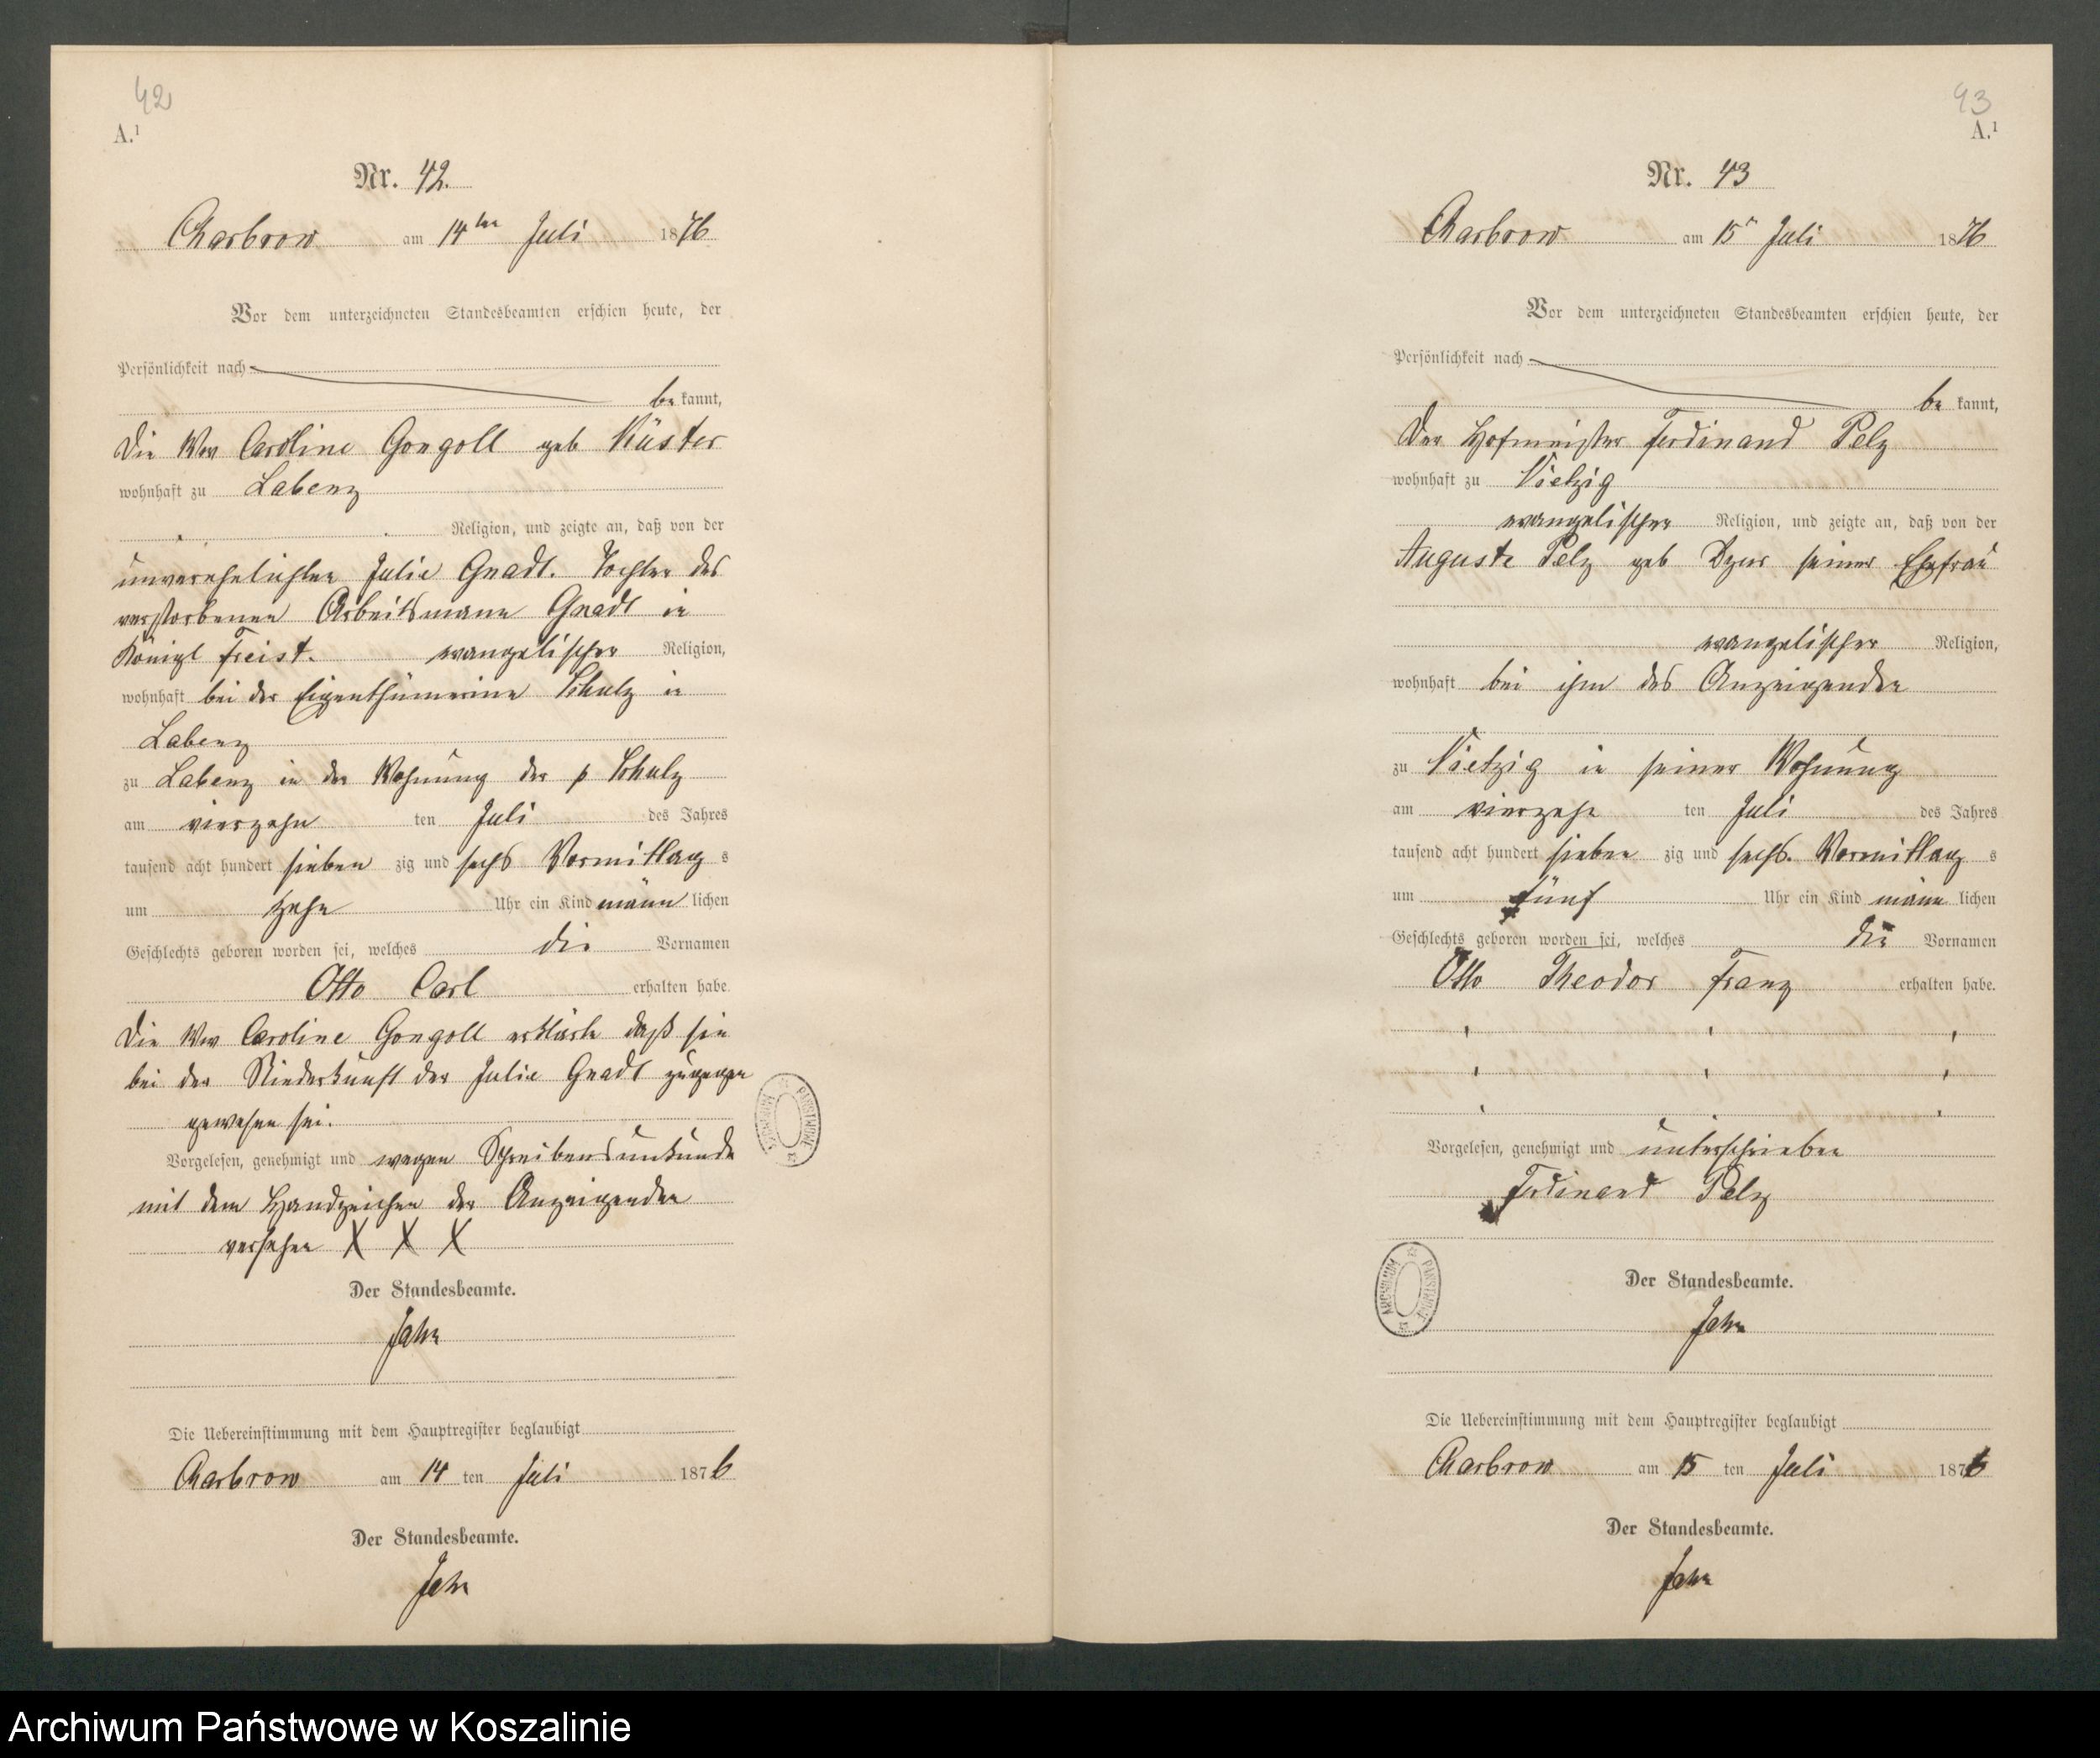 42
A.¹
Nr. 42.
Charbrow am 14ten Juli 1876
Vor dem unterzeichneten Standesbeamten erschien heute, der
Persönlichkeit nach
be kannt,
Die Wwe Caroline Gongoll geb Küster
wohnhaft zu Labenz
Religion, und zeigte an, daß von der
unverehelichten Julie Gnadt. Tochter des
verstorbenen Arbeitsmann Gnadt in
Königl Freist. evangelischer Religion,
wohnhaft bei der Eigenthümerinn Schulz in
Labenz
zu Labenz in der Wohnung der p Schulz
am vierzehn ten Juli des Jahres
tausend acht hundert sieben zig und sechs Vormittag s
um Zehn Uhr ein Kind männ lichen
Geschlechts geboren worden sei, welches die Vornamen
Otto Carl erhalten habe.
Die Wwe Caroline Gongoll erklärte daß sie
bei der Niederkunft der Julie Gnadt zugegen
gewesen sei.
Vorgelesen, genehmigt und wegen Schreibensunkunde
mit dem Handzeichen der Anzeigenden
versehen X X X
Der Standesbeamte.
Jahn
Die Uebereinstimmung mit dem Hauptregister beglaubigt
Charbrow am 14 ten Juli 1876
Der Standesbeamte.
Jahn
ARCHIWUM PAŃSTWOWE
43
A.¹
Nr. 43
Charbrow am 15n Juli 1876
Vor dem unterzeichneten Standesbeamten erschien heute, der
Persönlichkeit nach
be kannt,
Der Hofmeister Ferdinand Pelz
wohnhaft zu Vietzig
evangelischer Religion, und zeigte an, daß von der
Auguste Pelz geb seiner Ehefrau
evangelischer Religion,
wohnhaft bei ihm des Anzeigenden
zu Vietzig in seiner Wohnung
am vierzehn ten Juli des Jahres
tausend acht hundert sieben zig und sechs. Vormittag s
um fünf Uhr ein Kind männ lichen
Geschlechts geboren worden sei, welches die Vornamen
Otto Theodor Franz erhalten habe.
Vorgelesen, genehmigt und unterschrieben
Ferdinand Pelz
ARCHIWUM PAŃSTWOWE
Der Standesbeamte.
Jahn
Die Uebereinstimmung mit dem Hauptregister beglaubigt
Charbrow am 15 ten Juli 1876
Der Standesbeamte.
Jahn
Archiwum Państwowe w Koszalinie